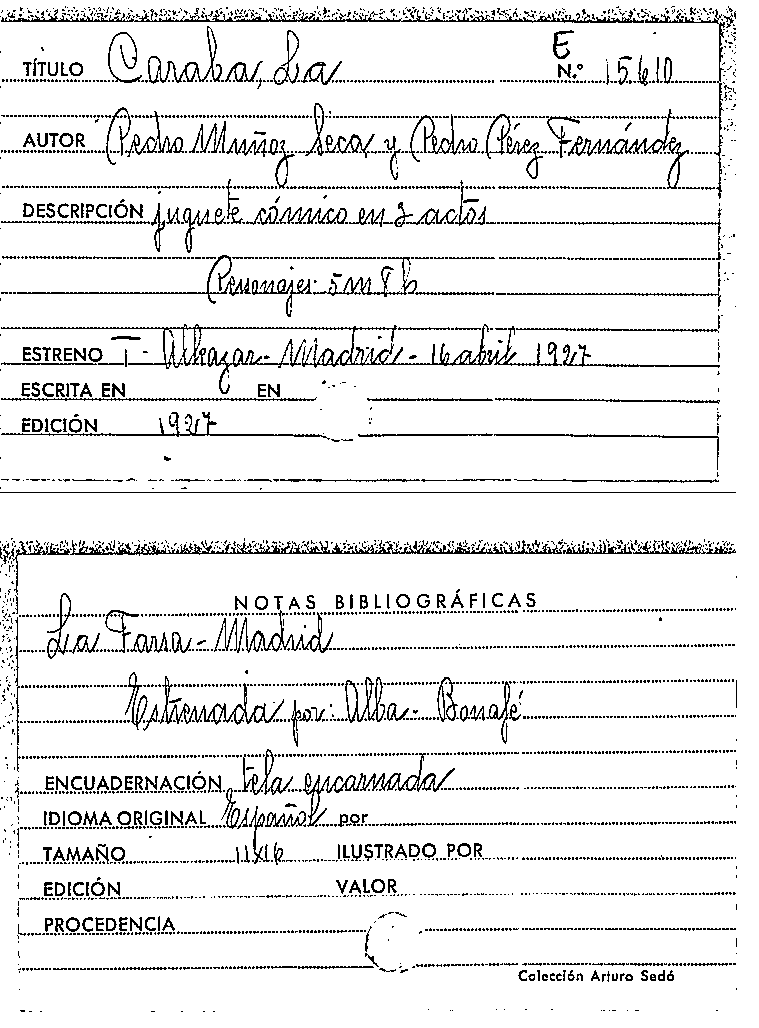 TÍTULO Caraba, La E N.º 15610
AUTOR Pedro Muñoz Seca, y Pedro Pérez Fernández
DESCRIPCIÓN juguete cómico en 3 actos
Personajes: 5 m 8 h
ESTRENO T - Alkazar - Madrid - 16 abril 1927
ESCRITA EN EN
EDICIÓN 1927
NOTAS BIBLIOGRÁFICAS
La Farsa - Madrid
Estrenada por: Alba - Bonafé
ENCUADERNACIÓN tela encarnada
IDIOMA ORIGINAL Español por
TAMAÑO 11x16 ILUSTRADO POR
EDICIÓN VALOR
PROCEDENCIA
Colección Arturo Sedó